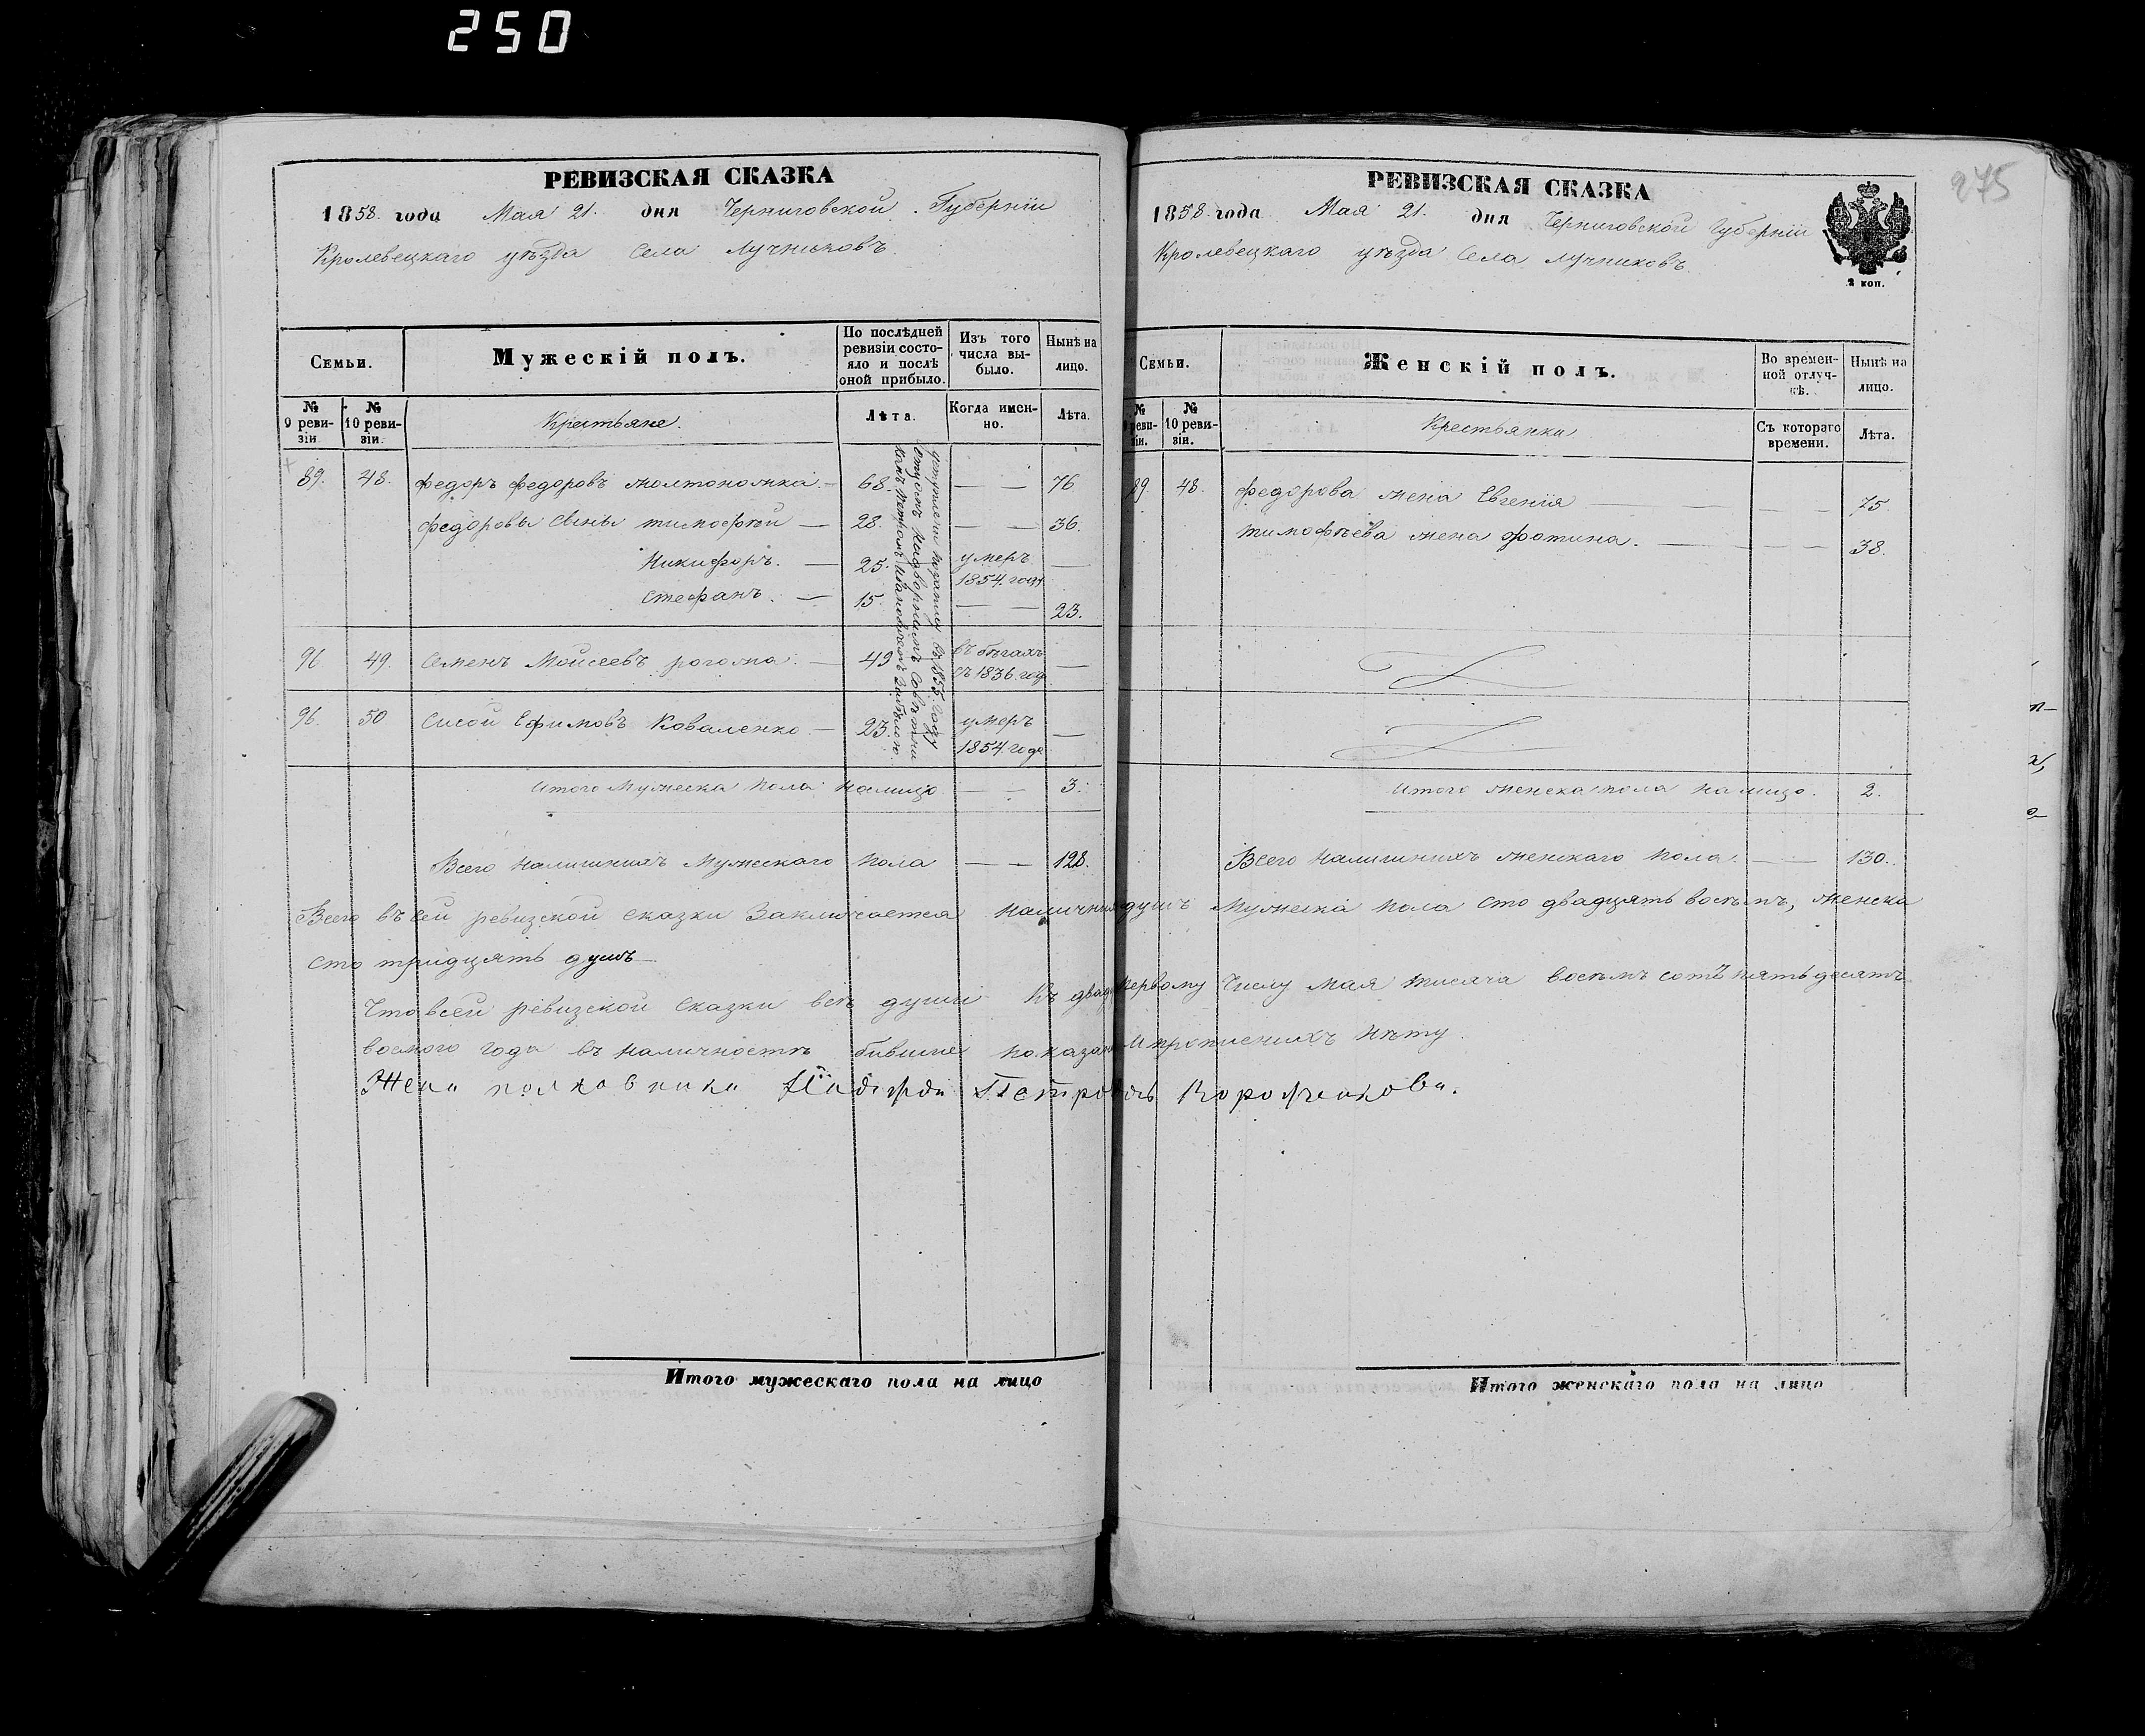 250
РЕВИЗСКАЯ СКАЗКА
1858. года Мая 21. дня Черниговской Губерніи
Кролевецкаго уѣзда Села Лучниковъ
Семьи.
Мужескій полъ.
По послѣдней ревизіи состояло и послѣ оной прибыло.
Изъ того числа выбыло.
Нынѣ на лицо.
№ 9 ревизіи.
№ 10 ревизіи.
Крестьяне.
Лѣта.
Когда именно.
Лѣта.
89. 48. Федоръ Федоровъ 68. — — 76
Федоровы сыны Тимофѣй — 28. — — 36.
Никифоръ. — 25. умеръ 1854. года —
Стефанъ. — 15. — — 23.
96 49. Семенъ Моисеевъ рогожа. — 49 въ бѣгахъ съ 1836. года —
96. 50 Сисой Ефимовъ Коваленко — 23. умеръ 1854. года —
въ 1855. году
Итого Мужеска пола налицо — — 3.
Всего наличнихъ Мужескаго пола — — 128.
РЕВИЗСКАЯ СКАЗКА
275
1858. года Мая 21. дня Черниговской Губерніи
Кролевецкаго уѣзда Села Лучниковъ
2 коп.
Семьи.
Женскій полъ.
Во временной отлучкѣ.
Нынѣ на лицо.
№ 9 ревизіи.
№ 10 ревизіи.
Крестьянки
Съ котораго времени.
Лѣта.
89. 48. Федорова жена Евгенія — — — 75.
Тимофѣева жена Фотина. — — — 38.
Итого женска пола налицо. 2.
Всего наличнихъ женскаго пола. — 130.
Всего въ сей ревизской сказки Заключается наличних душъ Мужеска пола сто двадцять восьмъ, женска
сто тридцять душъ
Что в сей ревизской сказки всѣ души Къ первому Числу Мая тисяча восемъ сотъ пятьдесятъ
восмого года въ наличностѣ бившие показани и прописнихъ нѣту.
Жена полковника Петрова
Итого мужескаго пола на лицо
Итого женскаго пола на лицо